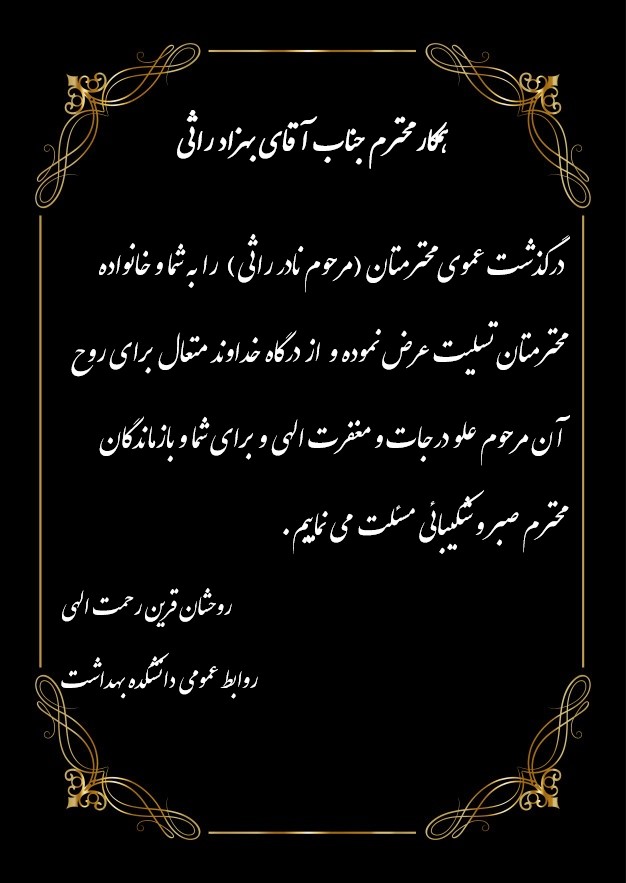 همکار محترم جناب آقای بهزاد راثی
درگذشت عموی محترمتان (مرحوم نادر راثی) را به شما و خانواده
محترمتان تسلیت عرض نموده و از درگاه خداوند متعال برای روح
آن مرحوم علو درجات و مغفرت الهی و برای شما و بازماندگان
محترم صبر و شکیبائی مسئلت می نماییم.
روحشان قرین رحمت الهی
روابط عمومی دانشکده بهداشت